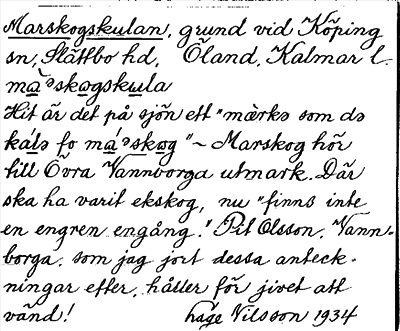 Marskogskulan, grund vid Köping
sn, Slättbo hd, Öland, Kalmar l.
ma`ᵊskogskula
Hit är det på sjön ett "märkə som də
kal's fo ma´ᵊskog" ~ Marskog hör
till Övra Vannborga utmark. Där
ska ha varit ekskog, nu "finns inte
en engren engång." Pit Olsson, Vann-
borga, som jag gort dessa anteck-
ningar efter, håller för givet att
vänd! Nilsson 1934